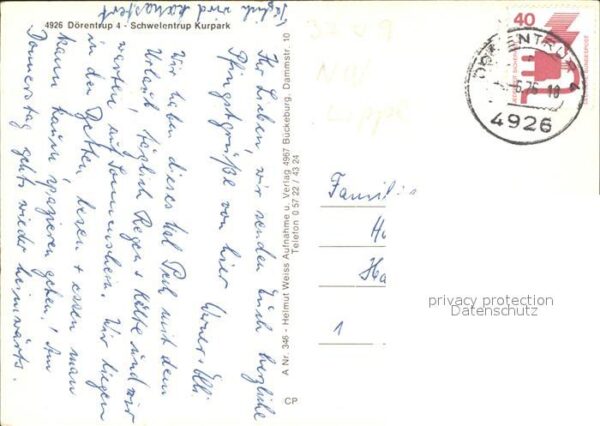 4926 Dörentrup 4 - Schwelentrup Kurpark
Täglich wird
Ihr Lieben, wir senden Euch herzliche
Pfingstgrüße von hier
Wir haben dieses Mal Pech mit dem
Urlaub, täglich Regen + Kälte und wir
warten auf Sonnenschein. Wir liegen
in den Betten, lesen + essen man
kann kaum spazieren gehen! Am
Donnerstag gehts wieder heimwärts.
A Nr. 346 - Helmut Weiss Aufnahme u. Verlag 4967 Bückeburg, Dammstr. 10
Telefon 0 57 22 / 43 24
CP
Lippe
40
DEUTSCHE BUNDESPOST
DÖRENTRUP 2
4926
Famili
Ha
1
privacy protection
Datenschutz